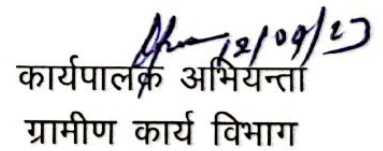 12/09/23
कार्यपालक अभियन्ता
ग्रामीण कार्य विभाग